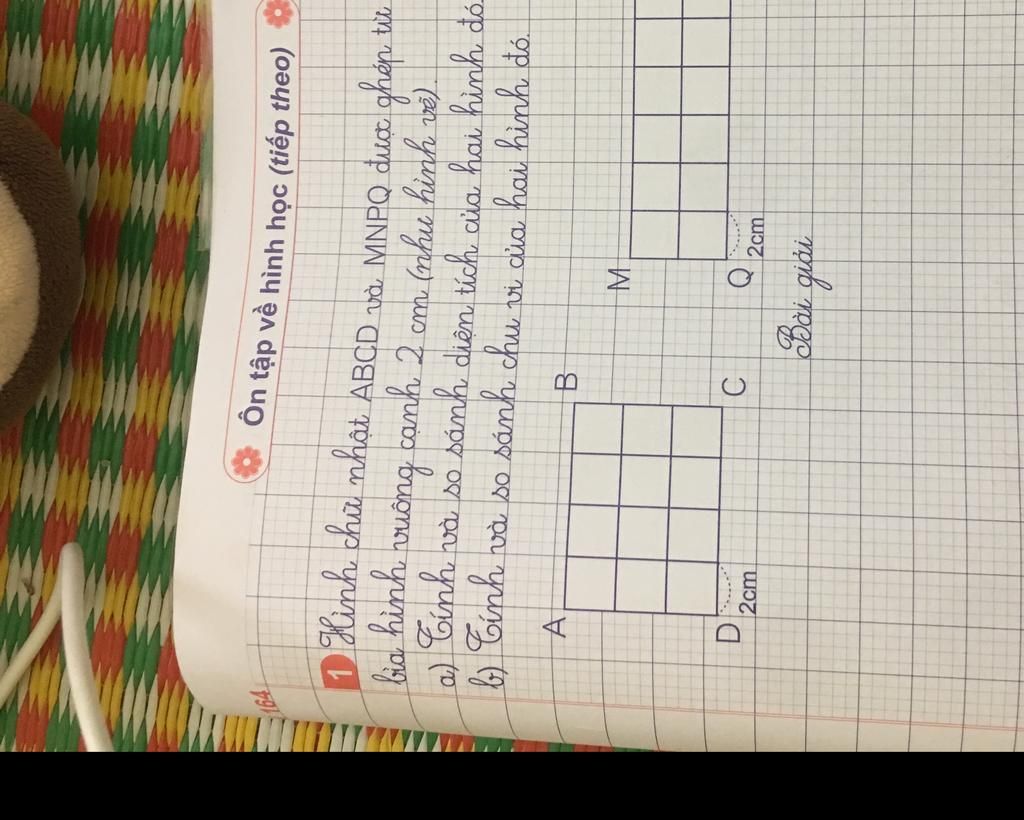 164
Ôn tập về hình học (tiếp theo)
1 Hình chữ nhật ABCD và MNPQ được ghép từ
bìa hình vuông cạnh 2 cm (như hình vẽ).
a) Tính và so sánh diện tích của hai hình đó
b) Tính và so sánh chu vi của hai hình đó.
A B
M
D 2cm C
Q 2cm
Bài giải